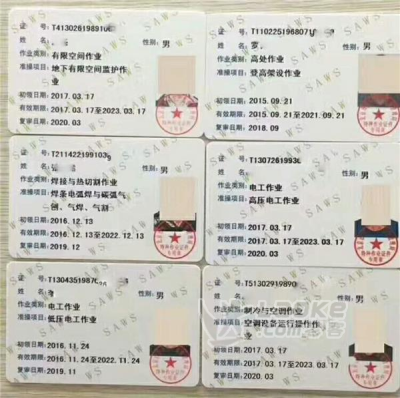 证 号: T413026198910
性别: 男
作业类别: 有限空间作业
准操项目: 地下有限空间监护作
业
初领日期: 2017. 03. 17
有效期限: 2017. 03. 17至2023. 03. 17
复审日期: 2020. 03
证 号: T110225196807
罗 性别: 男
作业类别: 高处作业
准操项目: 登高架设作业
初领日期: 2015. 09. 21
有效期限: 2015. 09. 21至2021. 09. 21
复审日期: 2018. 09
证 号: T211422199103
性别: 男
作业类别: 焊接与热切割作业
准操项目: 焊条电弧焊与碳弧气
刨、气焊、气割
初领日期: 2016. 12. 13
有效期限: 2016. 12. 13至2022. 12. 13
复审日期: 2019. 12
证 号: T130726199306
性别: 男
作业类别: 电工作业
准操项目: 高压电工作业
初领日期: 2017. 03. 17
有效期限: 2017. 03. 17至2023. 03. 17
复审日期: 2020. 03
证 号: T130435198
性别: 男
作业类别: 电工作业
准操项目: 低压电工作业
初领日期: 2016. 11. 24
有效期限: 2016. 11. 24至2022. 11. 24
复审日期: 2019. 11
证 号: T513029198901
性别: 男
作业类别: 制冷与空调作业
准操项目: 空调设备运行操作作
业
初领日期: 2017. 03. 17
有效期限: 2017. 03. 17至2023. 03. 17
复审日期: 2020. 03
SAWS